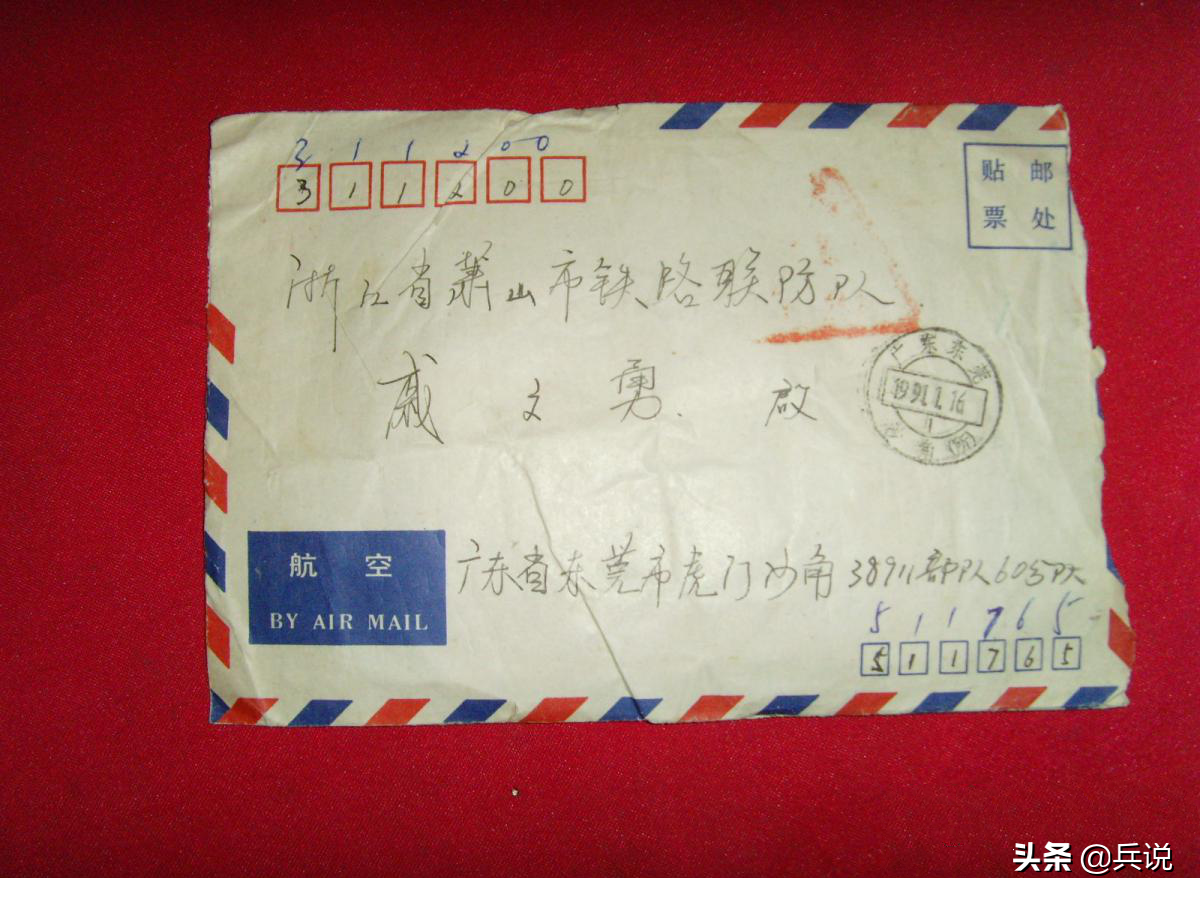 311200
311200
贴 邮
票 处
浙江省萧山市铁路联防队
戚文勇. 啟
广东东莞
1991.1.16
11
沙角(所)
航 空
BY AIR MAIL
广东省东莞市虎门沙角38911部队60分队
511765
511765
头条 @兵说